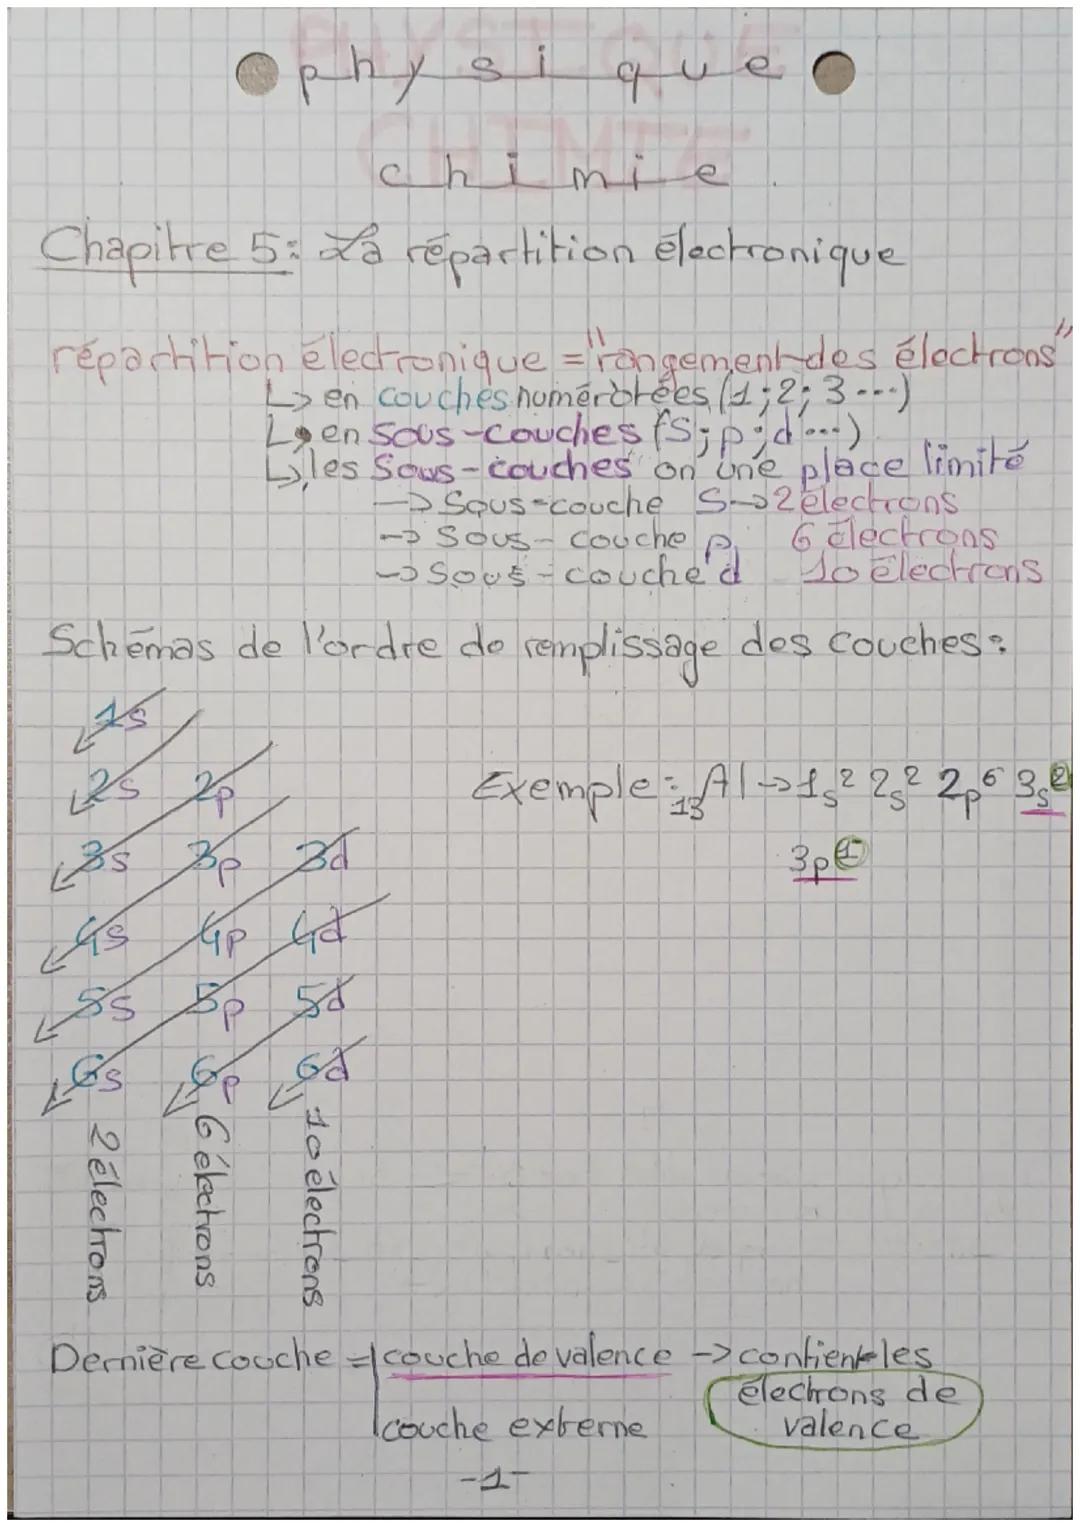 physique
chimie
Chapitre 5: La répartition électronique
répartition électronique = "rangement des électrons"
↳ en couches numérotées (1; 2; 3 ...)
↳ en sous-couches (s; p; d ...)
↳ les sous-couches on une place limité
→ sous-couche s → 2 électrons
→ sous-couche p 6 électrons
→ sous-couche d 10 électrons
Schémas de l'ordre de remplissage des couches:
1s
2s 2p
Exemple: ₁₃Al → 1s² 2s² 2p⁶ 3s²
3s 3p 3d
3p¹
4s 4p 4d
5s 5p 5d
6s 6p 6d
2 électrons
6 électrons
10 électrons
Dernière couche = couche de valence → contient les
électrons de
couche externe
valence
-1-